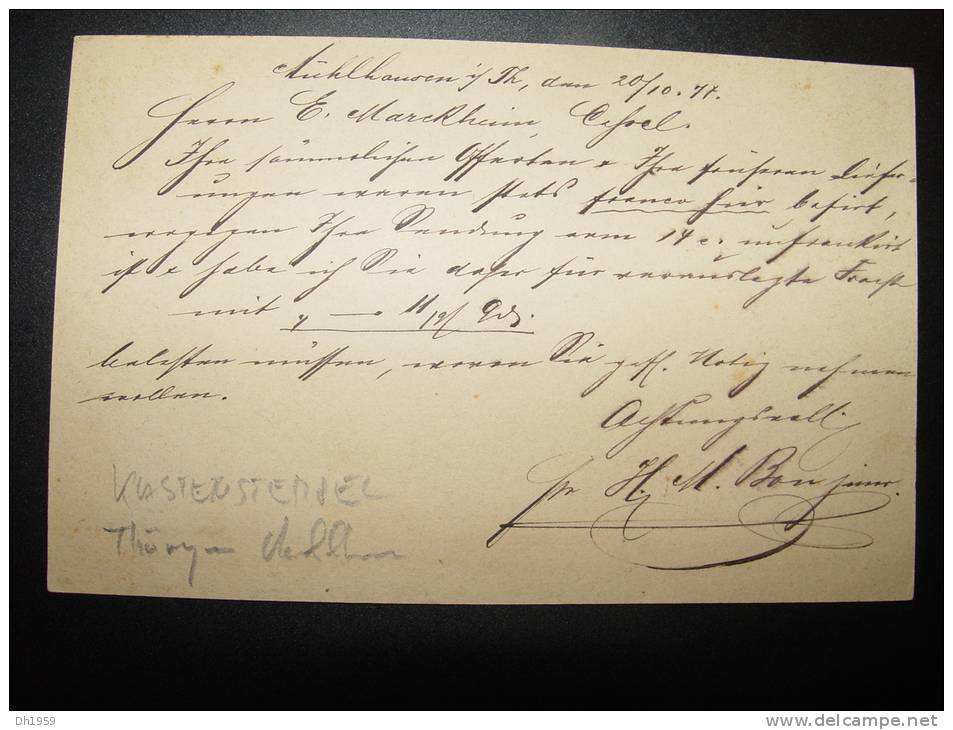 Mühlhausen i/Th, den 20/10. 77.
Herrn E. Marckheim, Cassel.
Ihre sämmtlichen Offerten & Ihre früheren Liefer-
ungen waren stets franco hier basirt,
wogegen Ihre Sendung vom 14 c. unfrankirt
ist & habe ich Sie daher für verauslagte Fracht
mit
belasten müssen, wovon Sie gefl. Notiz nehmen
wollen.
Achtungsvoll
pr H. M. Bon junior.
KASTENSTEMPEL
Dh1959
delcampe.net